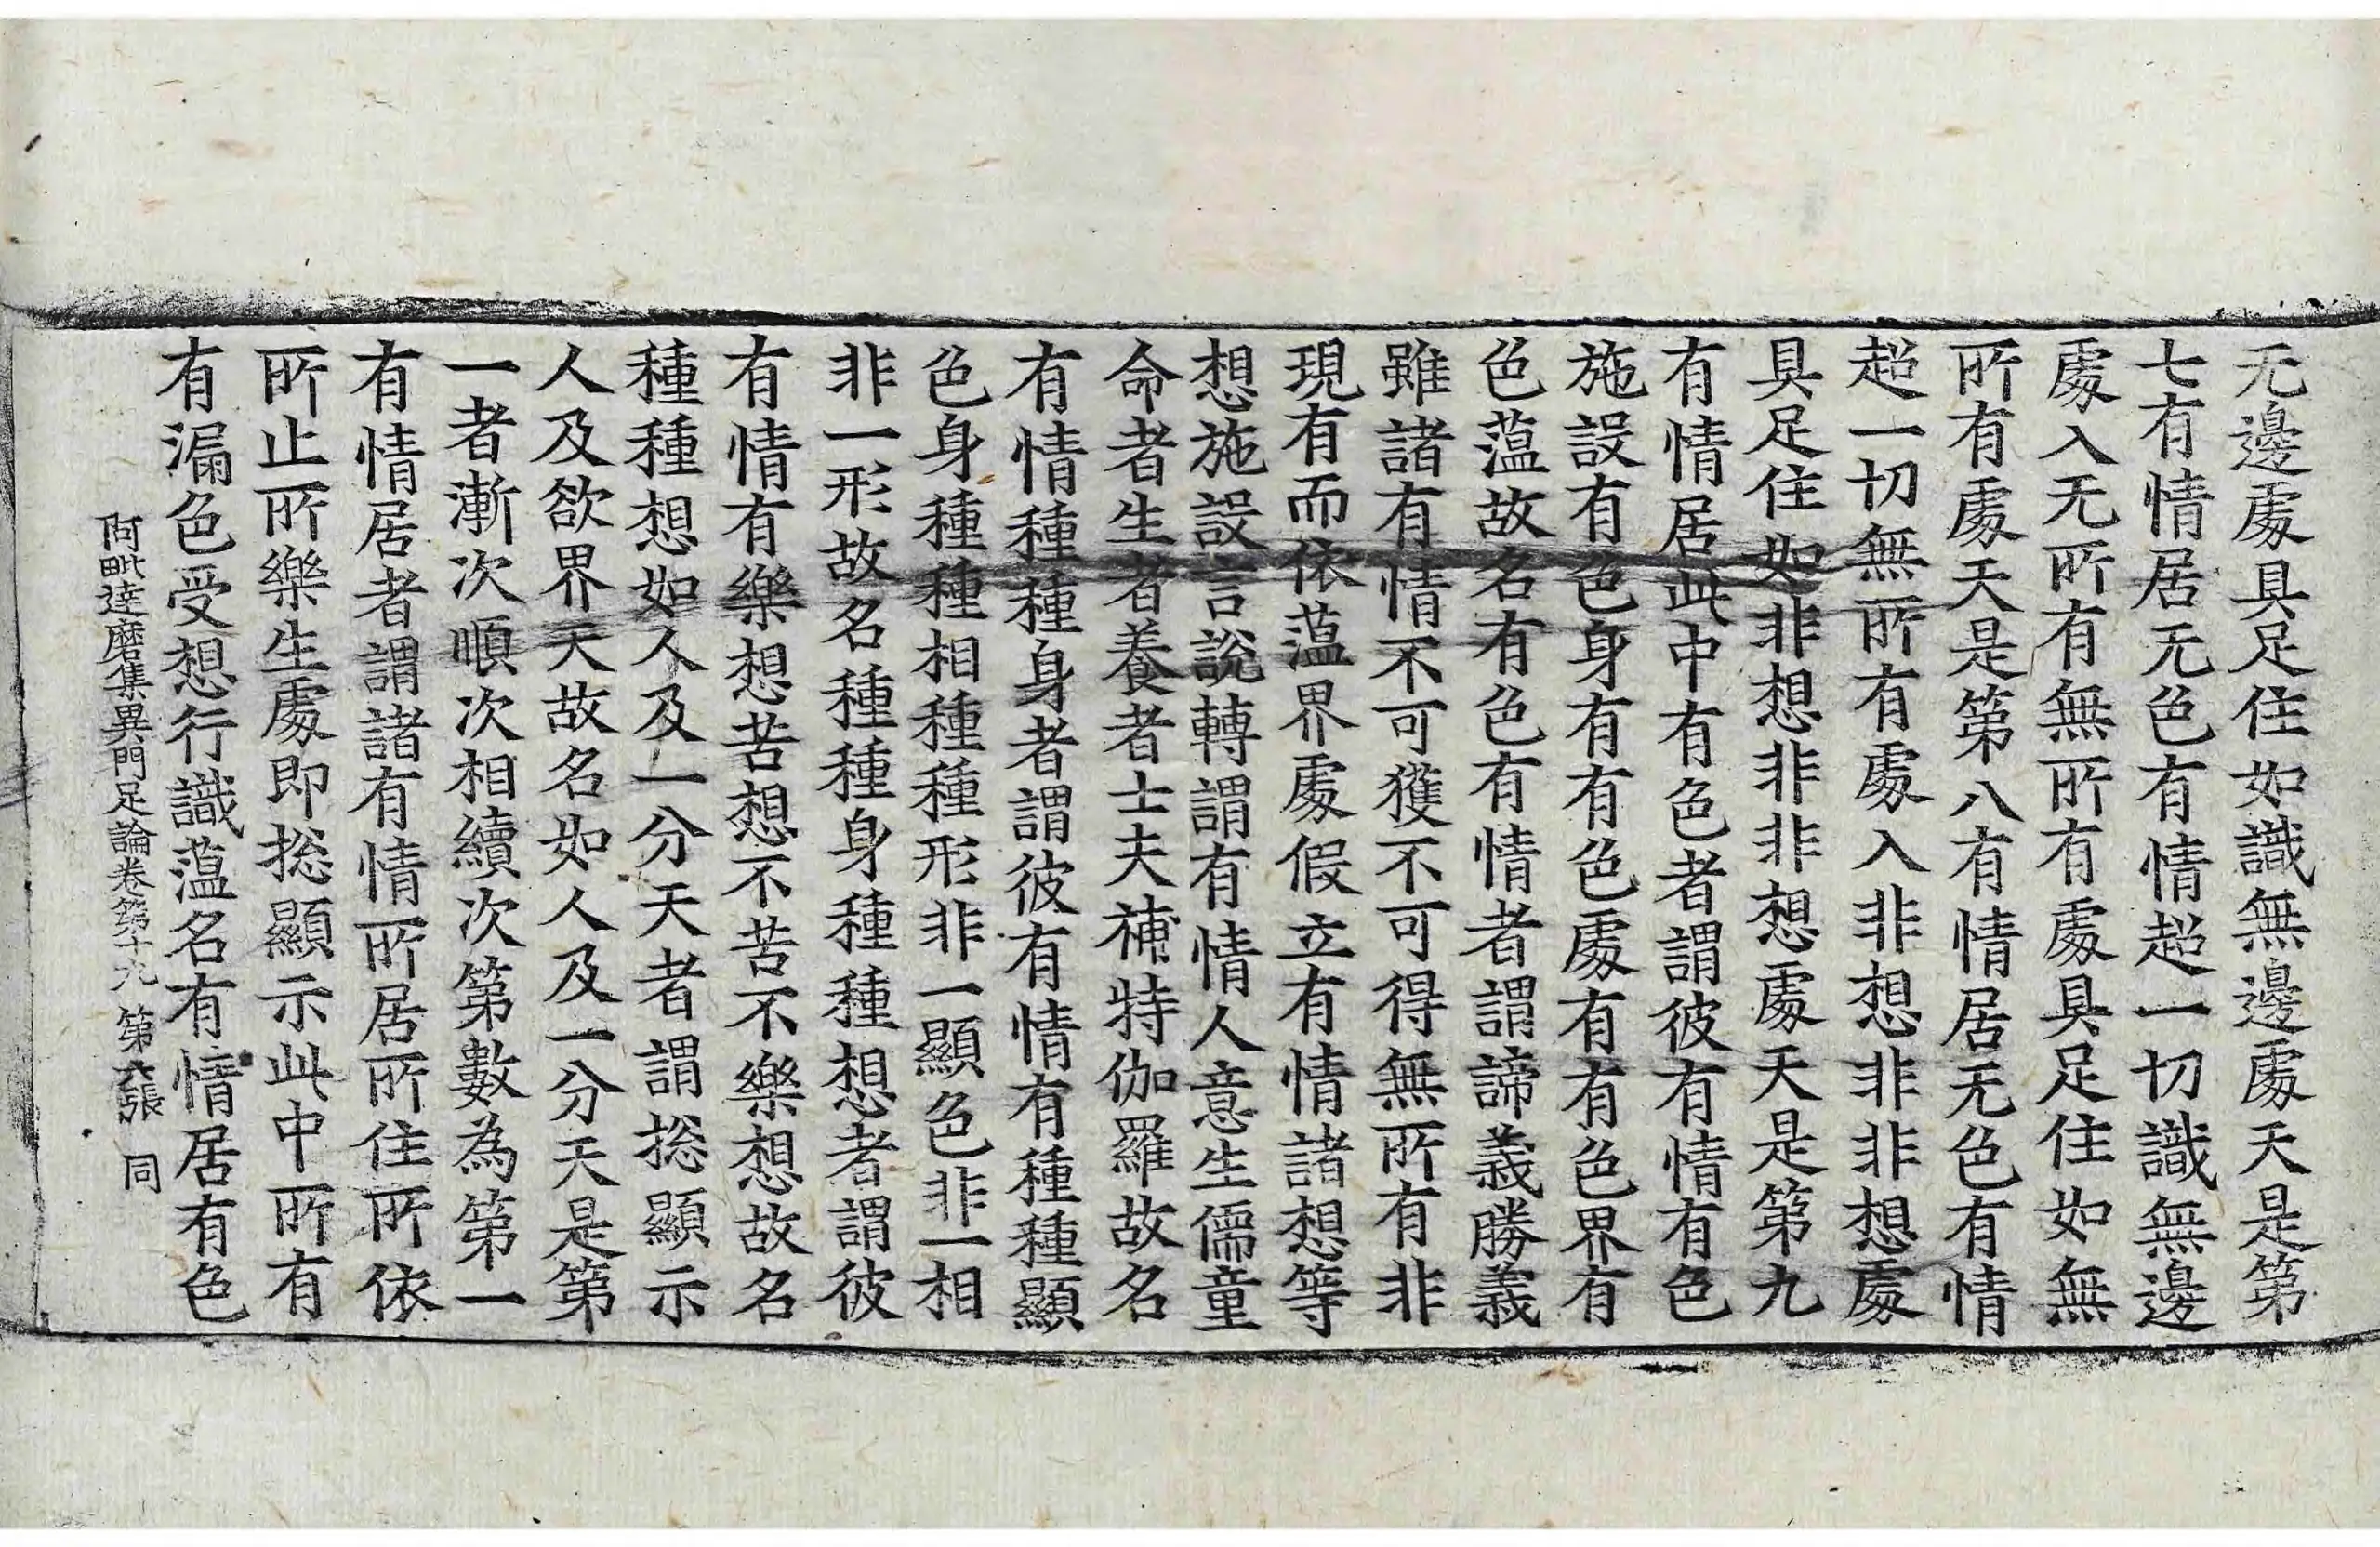 无邊處具足住如識無邊處天是第
七有情居无色有情超一切識無邊
處入无所有無所有處具足住如無
所有處天是第八有情居无色有情
超一切無所有處入非想非非想處
具足住如非想非非想處天是第九
有情居此中有色者謂彼有情有色
施設有色身有有色處有有色界有
色薀故名有色有情者謂諦義勝義
雖諸有情不可獲不可得無所有非
現有而依薀界處假立有情諸想等
想施設言說轉謂有情人意生儒童
命者生者養者士夫補特伽羅故名
有情種種身者謂彼有情有種種顯
色身種種相種種形非一顯色非一相
非一形故名種種身種種想者謂彼
有情有樂想苦想不苦不樂想故名
種種想如人及一分天者謂捴顯示
人及欲界天故名如人及一分天是第
一者漸次順次相續次第數為第一
有情居者謂諸有情所居所住所依
所止所樂生處即捴顯示此中所有
有漏色受想行識薀名有情居有色
阿毗達磨集異門足論卷第十九 第六張 同